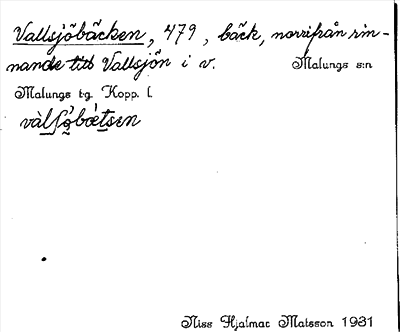 Vallsjöbäcken, 479, bäck, norrifrån rin-
nande till Vallsjön i v. Malungs s:n
Malungs tg. Kopp. l.
vàlʃǫ̀bǽtsɛn
Niss Hjalmar Matsson 1931